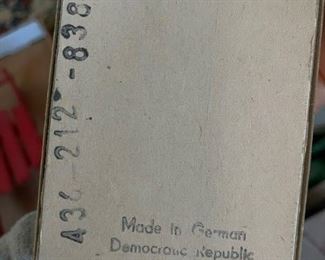 A36-212-838
Made in German
Democratic Republic